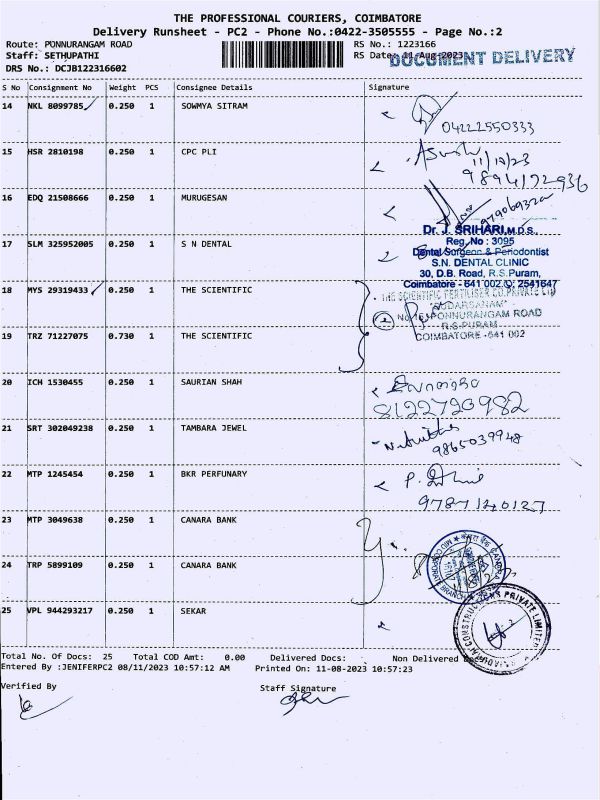 THE PROFESSIONAL COURIERS, COIMBATORE
Delivery Runsheet - PC2 - Phone No.:0422-3505555 - Page No.:2
Route: PONNURANGAM ROAD RS No.: 1223166
Staff: SETHUPATHI RS Date: 11-Aug-2023
DOCUMENT DELIVERY
DRS No.: DCJB122316602
S No Consignment No Weight PCS Consignee Details Signature
14 NKL 8099785 0.250 1 SOWMYA SITRAM
04222550333
15 HSR 2810198 0.250 1 CPC PLI
16 EDQ 21508666 0.250 1 MURUGESAN
Dr. J. SRIHARI, M.D.S.,
Reg. No : 3095
17 SLM 325952005 0.250 1 S N DENTAL
Dental Surgeon & Periodontist
S.N. DENTAL CLINIC
30, D.B. Road, R.S.Puram,
Coimbatore - 641 002. ✆: 2541647
18 MYS 29319433 0.250 1 THE SCIENTIFIC
THE SCIENTIFIC FERTILISER CO.PRIVATE LTD
"SUDARSANAM"
PONNURANGAM ROAD
R.S.PURAM
COIMBATORE -641 002
19 TRZ 71227075 0.730 1 THE SCIENTIFIC
20 ICH 1530455 0.250 1 SAURIAN SHAH
8122720982
21 SRT 302049238 0.250 1 TAMBARA JEWEL
9865039948
22 MTP 1245454 0.250 1 BKR PERFUNARY
9787140127
23 MTP 3049638 0.250 1 CANARA BANK
24 TRP 5899109 0.250 1 CANARA BANK
25 VPL 944293217 0.250 1 SEKAR
CONSTRUCTIONS PRIVATE LIMITED
Total No. Of Docs: 25 Total COD Amt: 0.00 Delivered Docs: Non Delivered
Entered By :JENIFERPC2 08/11/2023 10:57:12 AM Printed On: 11-08-2023 10:57:23
Verified By Staff Signature